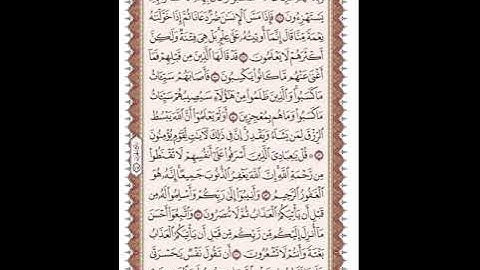 يَسْتَهْزِءُونَ ۝٤٨ فَإِذَا مَسَّ ٱلْإِنسَٰنَ ضُرٌّ دَعَانَا ثُمَّ إِذَا خَوَّلْنَٰهُ
نِعْمَةً مِّنَّا قَالَ إِنَّمَآ أُوتِيتُهُۥ عَلَىٰ عِلْمٍۭ بَلْ هِىَ فِتْنَةٌ وَلَٰكِنَّ
أَكْثَرَهُمْ لَا يَعْلَمُونَ ۝٤٩ قَدْ قَالَهَا ٱلَّذِينَ مِن قَبْلِهِمْ فَمَآ
أَغْنَىٰ عَنْهُم مَّا كَانُوا۟ يَكْسِبُونَ ۝٥٠ فَأَصَابَهُمْ سَيِّـَٔاتُ
مَا كَسَبُوا۟ وَٱلَّذِينَ ظَلَمُوا۟ مِنْ هَٰٓؤُلَآءِ سَيُصِيبُهُمْ سَيِّـَٔاتُ
مَا كَسَبُوا۟ وَمَا هُم بِمُعْجِزِينَ ۝٥١ أَوَلَمْ يَعْلَمُوٓا۟ أَنَّ ٱللَّهَ يَبْسُطُ
ٱلرِّزْقَ لِمَن يَشَآءُ وَيَقْدِرُ إِنَّ فِى ذَٰلِكَ لَءَايَٰتٍ لِّقَوْمٍ يُؤْمِنُونَ
۝٥٢ قُلْ يَٰعِبَادِىَ ٱلَّذِينَ أَسْرَفُوا۟ عَلَىٰٓ أَنفُسِهِمْ لَا تَقْنَطُوا۟
مِن رَّحْمَةِ ٱللَّهِ إِنَّ ٱللَّهَ يَغْفِرُ ٱلذُّنُوبَ جَمِيعًا إِنَّهُۥ هُوَ
ٱلْغَفُورُ ٱلرَّحِيمُ ۝٥٣ وَأَنِيبُوٓا۟ إِلَىٰ رَبِّكُمْ وَأَسْلِمُوا۟ لَهُۥ مِن
قَبْلِ أَن يَأْتِيَكُمُ ٱلْعَذَابُ ثُمَّ لَا تُنصَرُونَ ۝٥٤ وَٱتَّبِعُوٓا۟ أَحْسَنَ
مَآ أُنزِلَ إِلَيْكُم مِّن رَّبِّكُم مِّن قَبْلِ أَن يَأْتِيَكُمُ ٱلْعَذَابُ
بَغْتَةً وَأَنتُمْ لَا تَشْعُرُونَ ۝٥٥ أَن تَقُولَ نَفْسٌ يَٰحَسْرَتَىٰ